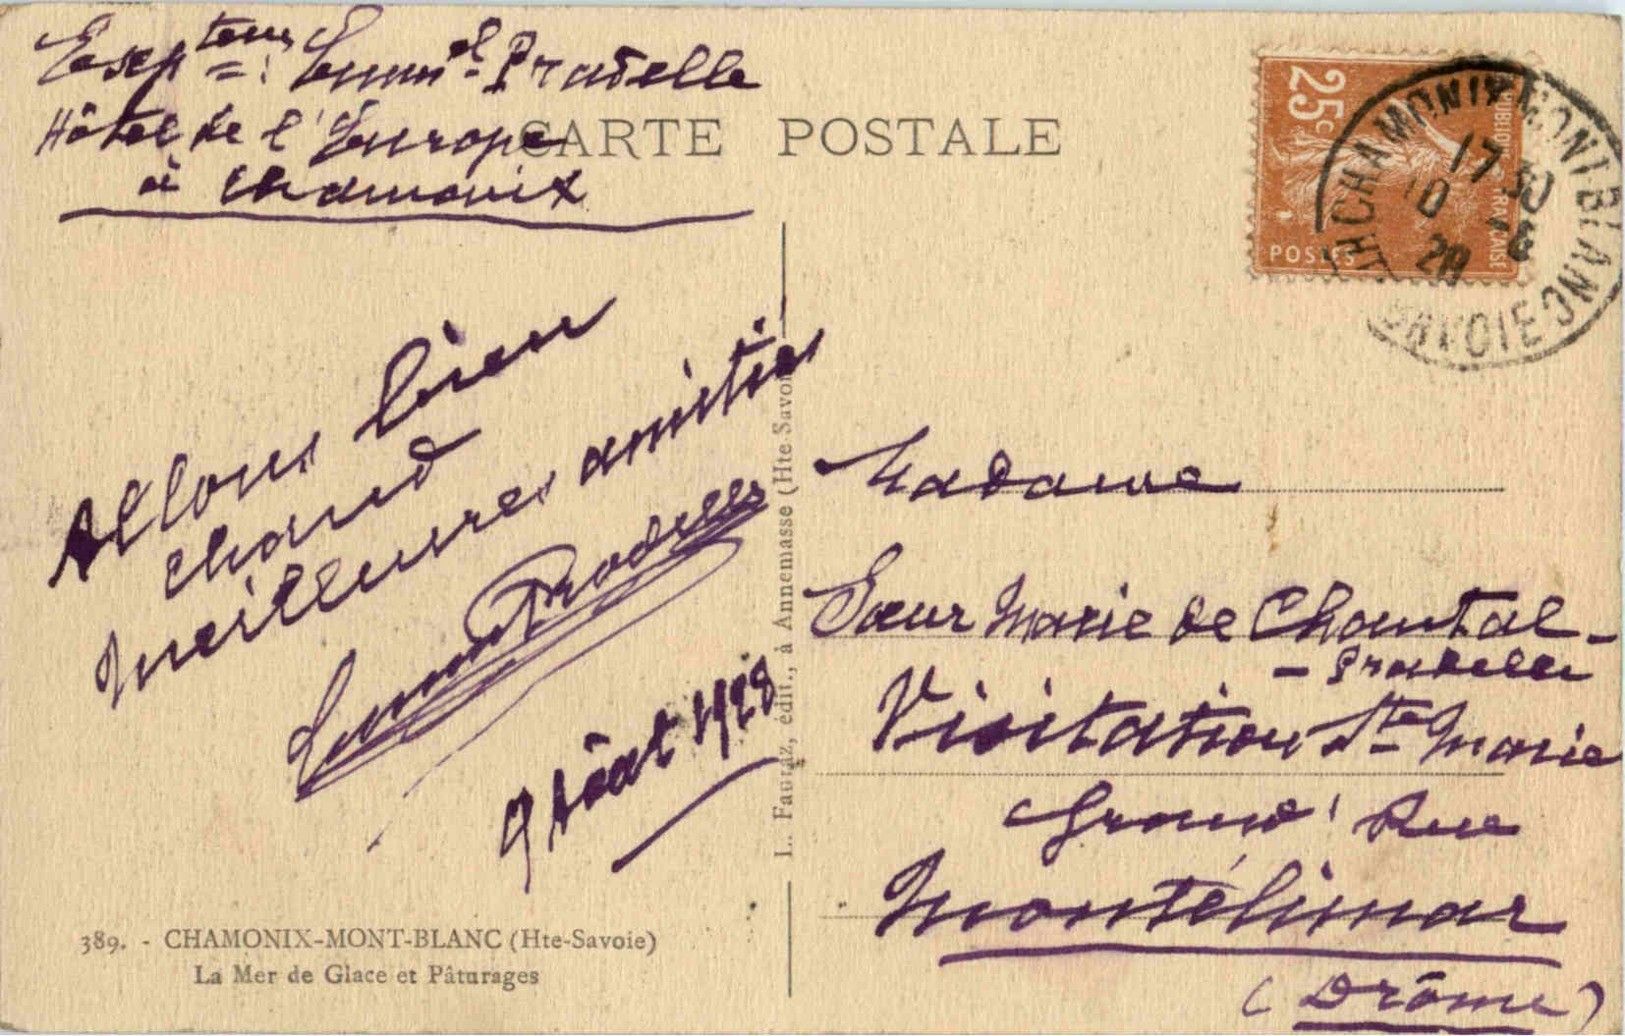 Exp teur : Emm el Pradelle
Hôtel de l'Europe
à Chamonix
CARTE POSTALE
25c
POSTES
CHAMONIX MONT BLANC
17 30
10 8
28
SAVOIE
Allons bien
chaud
meilleures amitiés
Emm Pradelle
9 Aôat 1928
L. Fauraz, édit., à Annemasse (Hte Savoie
Madame
Sœur Marie de Chantal -
- Pradelle
Visitation Ste Marie
Grand' Rue
Montélimar
(Drôme)
389. - CHAMONIX-MONT-BLANC (Hte-Savoie)
La Mer de Glace et Pâturages